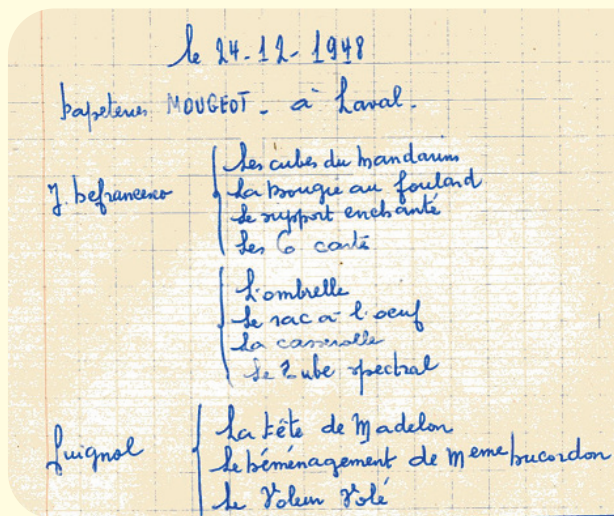 le 24-12-1948
Papeteries MOUGEOT - à Laval.
Les cubes du Mandarins
J. Defrancesco La Bougie au foulard
Le support enchanté
Les 6 carté
L'ombrelle
Le sac à l'oeuf
La casserolle
Le Tube spectral
La Fête de Madelon
Guignol Le Déménagement de Meme Ducordon
Le Voleur Volé